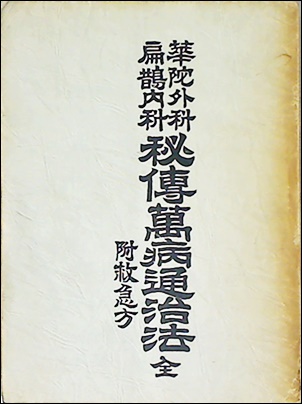 華陀外科
扁鵲內科
秘傳萬病通治法 全
附救急方